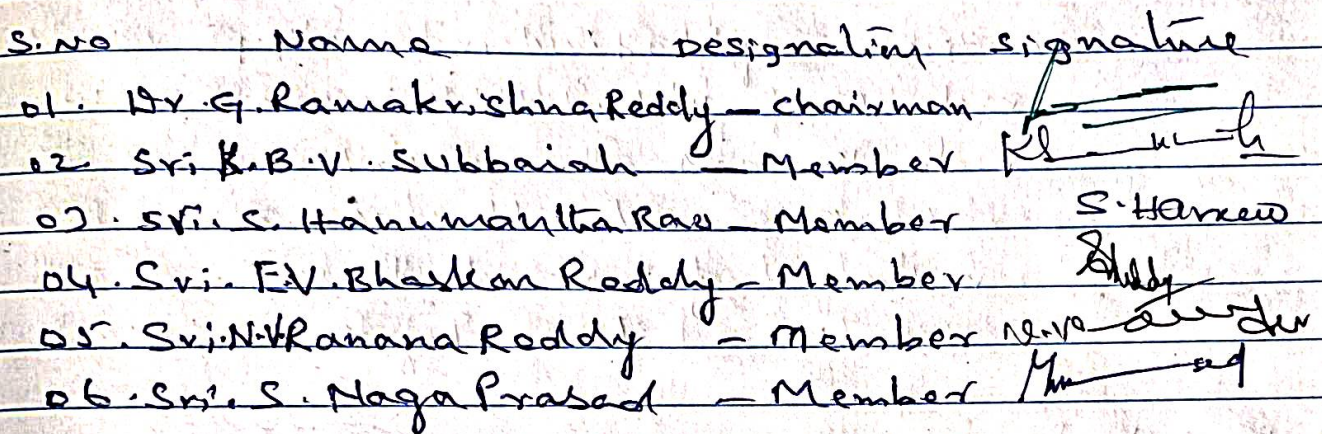 S.No Name Designation Signature
01. Dr. G. Ramakrishna Reddy - Chairman
02 Sri K.B.V. Subbaiah - Member
03. Sri. S. Hanumantha Rao - Member S. Hanu
04. Sri. E.V. Bhaskar Reddy - Member
05. Sri. N.V Ranana Reddy - Member
06. Sri. S. Naga Prasad - Member